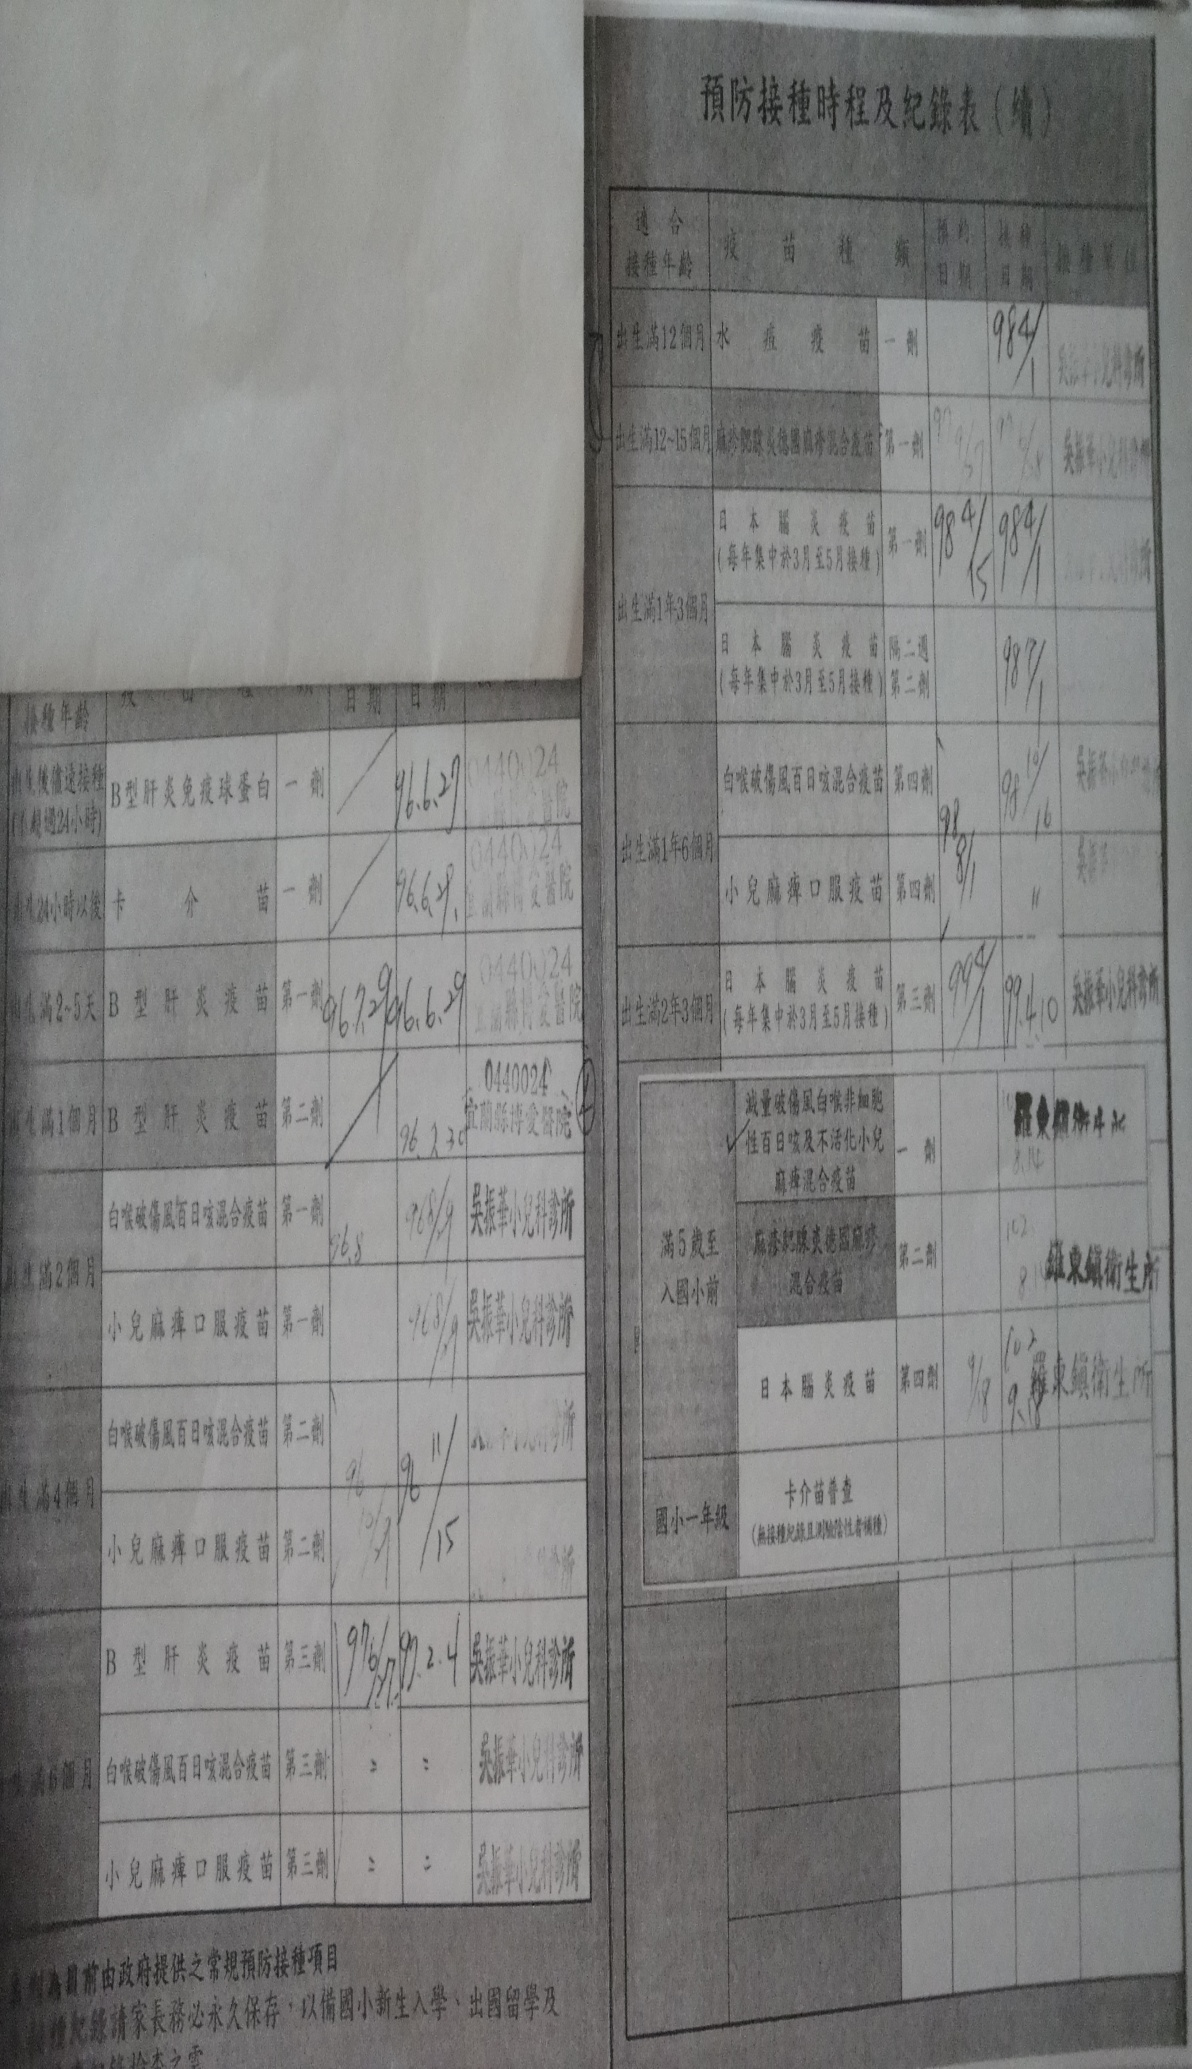 接種年齡
日期
日期
B型肝炎免疫球蛋白
一劑
96.6.27
0440024
卡介苗
一劑
0440024
B型肝炎疫苗
第一劑
96.7.29
96.6.29
0440024
宜蘭縣博愛醫院
滿1個月
B型肝炎疫苗
第二劑
0440024
宜蘭縣博愛醫院
滿2個月
白喉破傷風百日咳混合疫苗
第一劑
96.8
吳振華小兒科診所
小兒麻痺口服疫苗
第一劑
吳振華小兒科診所
滿4個月
白喉破傷風百日咳混合疫苗
第二劑
96 11/15
小兒麻痺口服疫苗
第二劑
滿6個月
B型肝炎疫苗
第三劑
97.2.4
吳振華小兒科診所
白喉破傷風百日咳混合疫苗
第三劑
=
=
吳振華小兒科診所
小兒麻痺口服疫苗
第三劑
=
=
吳振華小兒科診所
前由政府提供之常規預防接種項目
紀錄請家長務必永久保存，以備國小新生入學、出國留學及
預防接種時程及紀錄表（續）
適合
接種年齡
疫苗種類
預約
日期
接種
日期
接種單位
出生滿12個月
水痘疫苗
一劑
98 4/1
吳振華小兒科診所
出生滿12~15個月
麻疹腮腺炎德國麻疹混合疫苗
第一劑
吳振華小兒科診所
出生滿1年3個月
日本腦炎疫苗
(每年集中於3月至5月接種)
第一劑
98 4/15
98 4/1
日本腦炎疫苗
(每年集中於3月至5月接種)
隔二週
第二劑
98 7/1
出生滿1年6個月
白喉破傷風百日咳混合疫苗
第四劑
98 8/1
98 10/16
小兒麻痺口服疫苗
第四劑
〃
出生滿2年3個月
日本腦炎疫苗
(每年集中於3月至5月接種)
第三劑
99 4/1
99.4.10
吳振華小兒科診所
滿5歲至
入國小前
減量破傷風白喉非細胞
性百日咳及不活化小兒
麻痺混合疫苗
一劑
8.14
羅東鎮衛生所
麻疹腮腺炎德國麻疹
混合疫苗
第二劑
102
8
羅東鎮衛生所
日本腦炎疫苗
第四劑
9/18
102
9.18
羅東鎮衛生所
國小一年級
卡介苗普查
(無接種紀錄且測驗陰性者補種)